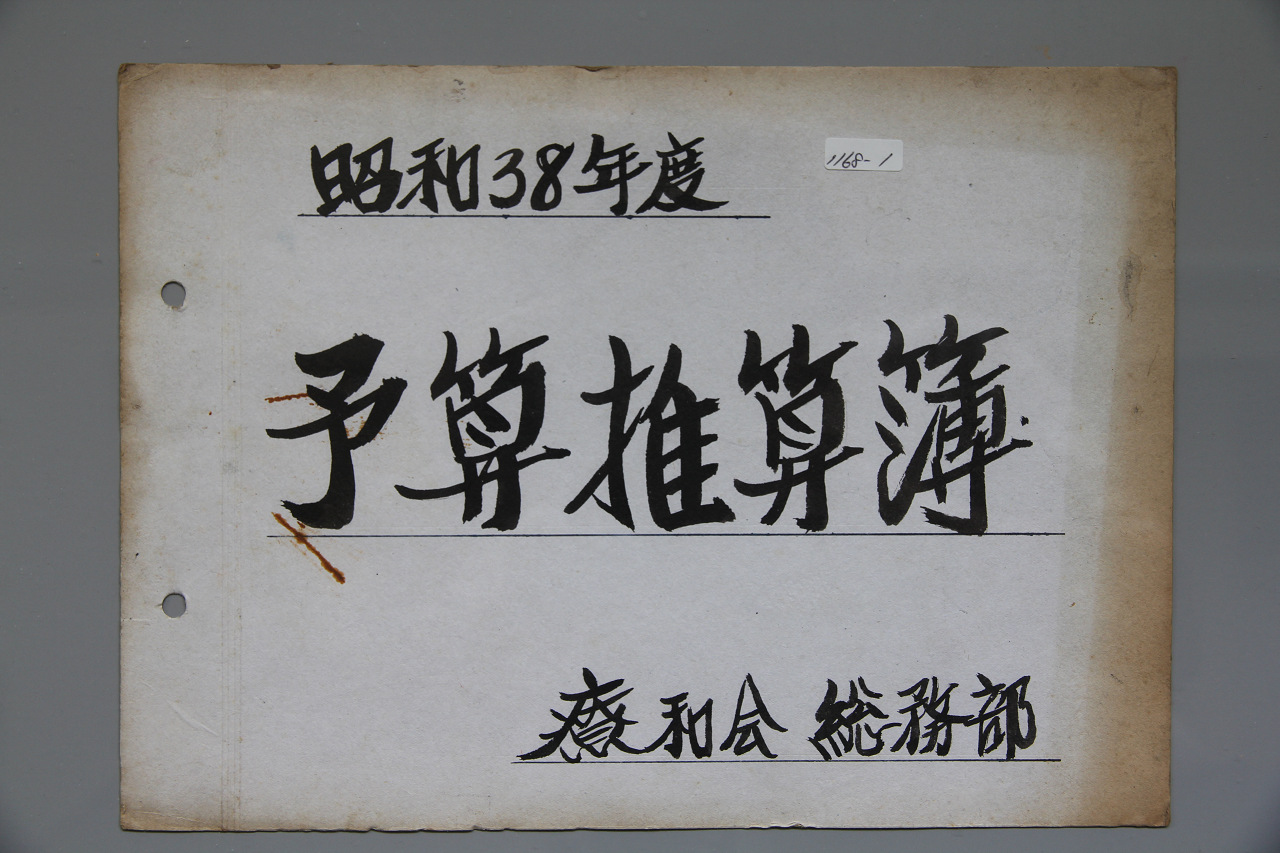 昭和38年度
1168-1
予算推算簿
癈和会 総務部